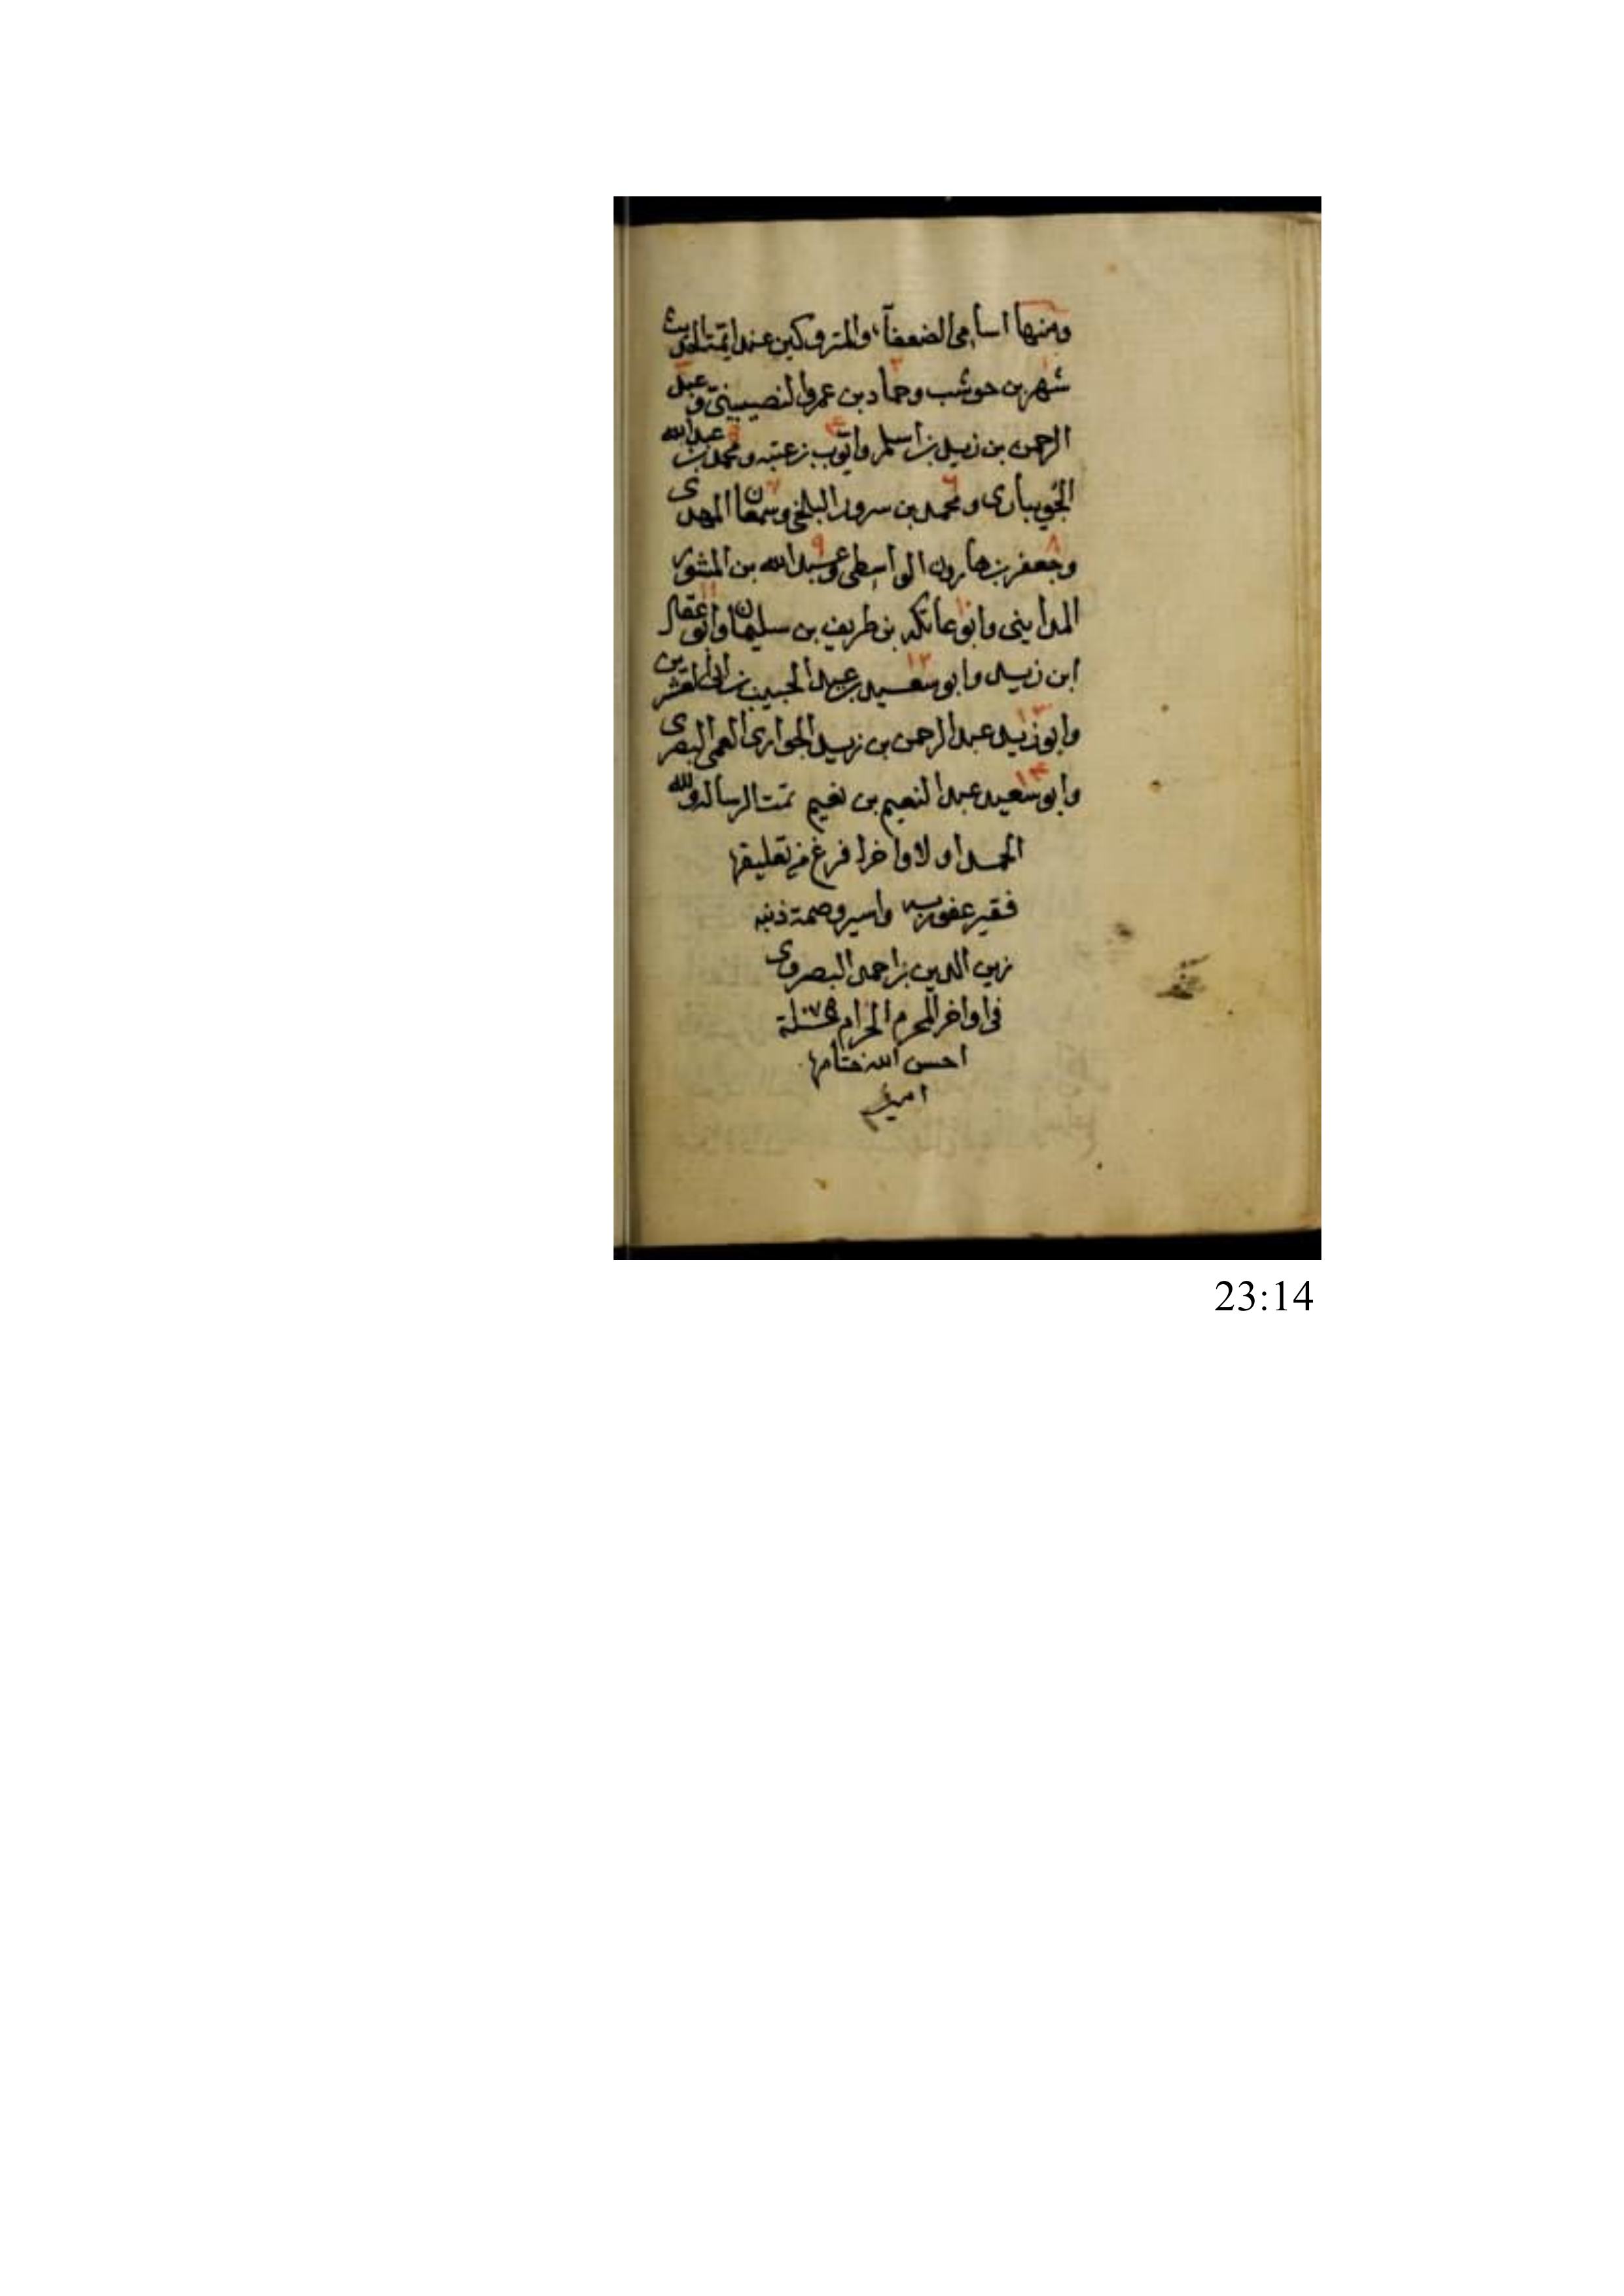 ومنها اسامى الضعفآء والمتروكين عند ائمة الحديث
شهر بن حوشب وحماد بن عمرو النصيبينى و عبد
الرحمن بن زيد بن اسلم وايوب بن عتبه ومحمد بن عبد الله
الجويبارى ومحمد بن سرور البلخى وسمعان المهدى
وجعفر بن هارون الواسطى و عبد الله بن المشور
المداينى وابو عاتكه بن طريف بن سليمان وابو عقال
ابن زيد وابو سعيد بن عبد الحسين بن ابى العشرين
وابو زيد عبد الرحمن بن زيد الحوارى العمى البصرى
وابو سعيد عبد النعيم بن نعيم تمت الرساله ولله
الحمد اولا واخرا فرغ من تعليقها
فقير عفو ربه واسير وصمة ذنبه
زين الدين بن احمد البصروى
فى اواخر المحرم الحرام
احسن الله ختامها
امين
23:14